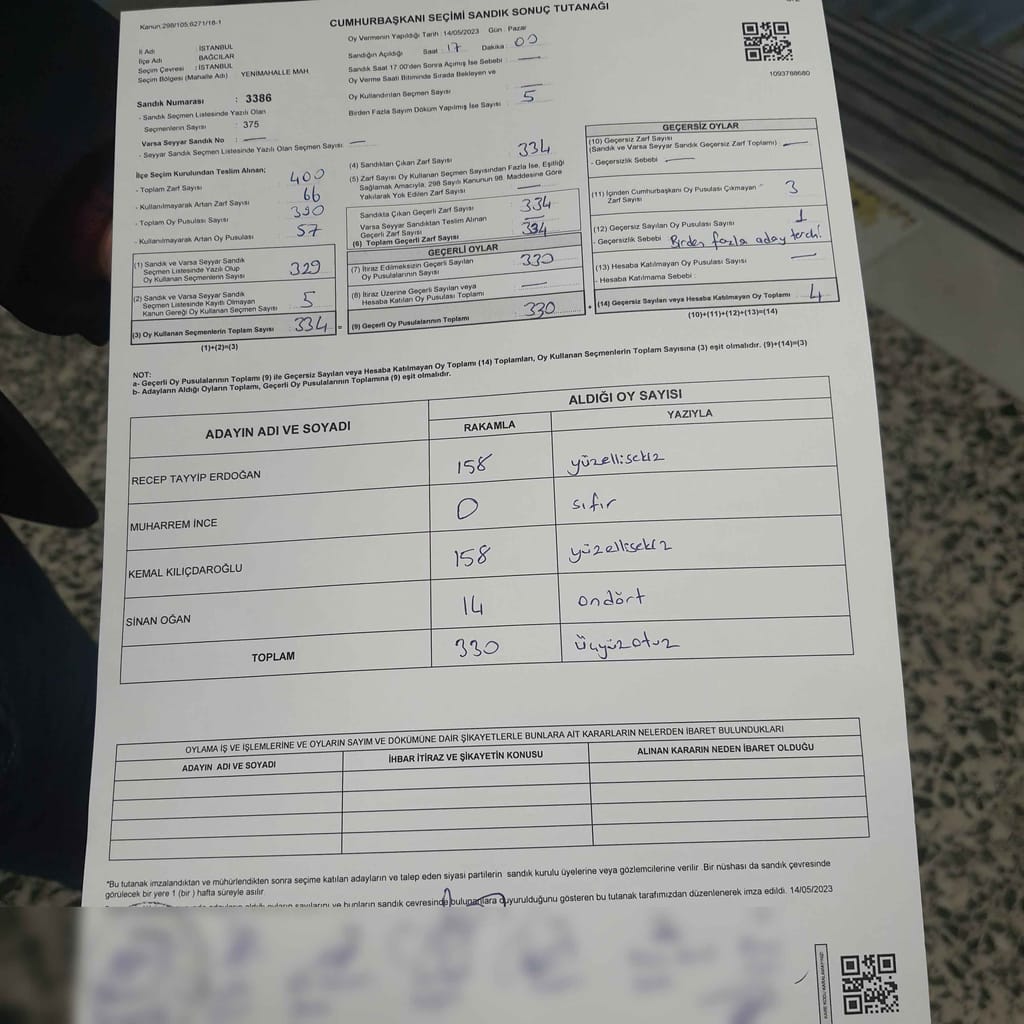 Kanun:298/105;6271/16-1
CUMHURBAŞKANI SEÇİMİ SANDIK SONUÇ TUTANAĞI
İl Adı : İSTANBUL
İlçe Adı : BAĞCILAR
Seçim Çevresi : İSTANBUL
Seçim Bölgesi (Mahalle Adı) YENİMAHALLE MAH.
Sandık Numarası : 3386
- Sandık Seçmen Listesinde Yazılı Olan
Seçmenlerin Sayısı : 375
Varsa Seyyar Sandık No : —
- Seyyar Sandık Seçmen Listesinde Yazılı Olan Seçmen Sayısı: —
Oy Vermenin Yapıldığı Tarih : 14/05/2023 Gün : Pazar
Sandığın Açıldığı Saat : 17 Dakika : 00
Sandık Saat 17.00'den Sonra Açımış İse Sebebi : —
Oy Verme Saati Bitiminde Sırada Bekleyen ve
Oy Kullandırılan Seçmen Sayısı : —
Birden Fazla Sayım Döküm Yapılmış İse Sayısı : 5
1093788680
İlçe Seçim Kurulundan Teslim Alınan;
- Toplam Zarf Sayısı : 400
- Kullanılmayarak Artan Zarf Sayısı : 66
- Toplam Oy Pusulası Sayısı : 390
- Kullanılmayarak Artan Oy Pusulası : 57
(1) Sandık ve Varsa Seyyar Sandık
Seçmen Listesinde Yazılı Olup
Oy Kullanan Seçmenlerin Sayısı 329
(2) Sandık ve Varsa Seyyar Sandık
Seçmen Listesinde Kayıtlı Olmayan
Kanun Gereği Oy Kullanan Seçmen Sayısı 5
(3) Oy Kullanan Seçmenlerin Toplam Sayısı 334 =
(1)+(2)=(3)
(4) Sandıktan Çıkan Zarf Sayısı 334
(5) Zarf Sayısı Oy Kullanan Seçmen Sayısından Fazla İse, Eşitliği
Sağlamak Amacıyla; 298 Sayılı Kanunun 98. Maddesine Göre
Yakılarak Yok Edilen Zarf Sayısı —
Sandıkta Çıkan Geçerli Zarf Sayısı 334
Varsa Seyyar Sandıktan Teslim Alınan
Geçerli Zarf Sayısı —
(6) Toplam Geçerli Zarf Sayısı 334
GEÇERLİ OYLAR
(7) İtiraz Edilmeksizin Geçerli Sayılan
Oy Pusulalarının Sayısı 330
(8) İtiraz Üzerine Geçerli Sayılan veya
Hesaba Katılan Oy Pusulası Toplamı —
(9) Geçerli Oy Pusulalarının Toplamı 330 +
GEÇERSİZ OYLAR
(10) Geçersiz Zarf Sayısı
(Sandık ve Varsa Seyyar Sandık Geçersiz Zarf Toplamı) —
- Geçersizlik Sebebi : —
(11) İçinden Cumhurbaşkanı Oy Pusulası Çıkmayan
Zarf Sayısı 3
(12) Geçersiz Sayılan Oy Pusulası Sayısı 1
- Geçersizlik Sebebi : Birden fazla aday terchi
(13) Hesaba Katılmayan Oy Pusulası Sayısı —
- Hesaba Katılmama Sebebi :
(14) Geçersiz Sayılan veya Hesaba Katılmayan Oy Toplamı 4
(10)+(11)+(12)+(13)=(14)
NOT:
a- Geçerli Oy Pusulalarının Toplamı (9) ile Geçersiz Sayılan veya Hesaba Katılmayan Oy Toplamı (14) Toplamları, Oy Kullanan Seçmenlerin Toplam Sayısına (3) eşit olmalıdır. (9)+(14)=(3)
b- Adayların Aldığı Oyların Toplamı, Geçerli Oy Pusulalarının Toplamına (9) eşit olmalıdır.
ADAYIN ADI VE SOYADI ALDIĞI OY SAYISI
RAKAMLA YAZIYLA
RECEP TAYYİP ERDOĞAN 158 yüzellisekiz
MUHARREM İNCE 0 sıfır
KEMAL KILIÇDAROĞLU 158 yüzellisekiz
SİNAN OĞAN 14 ondört
TOPLAM 330 üçyüzotuz
OYLAMA İŞ VE İŞLEMLERİNE VE OYLARIN SAYIM VE DÖKÜMÜNE DAİR ŞİKAYETLERLE BUNLARA AİT KARARLARIN NELERDEN İBARET BULUNDUKLARI
ADAYIN ADI VE SOYADI İHBAR İTİRAZ VE ŞİKAYETİN KONUSU ALINAN KARARIN NEDEN İBARET OLDUĞU
*Bu tutanak imzalandıktan ve mühürlendikten sonra seçime katılan adayların ve talep eden siyasi partilerin sandık kurulu üyelerine veya gözlemcilerine verilir. Bir nüshası da sandık çevresinde
görülecek bir yere 1 (bir ) hafta süreyle asılır.
sayılarını ve bunların sandık çevresinde bulunanlara duyurulduğunu gösteren bu tutanak tarafımızdan düzenlenerek imza edildi. 14/05/2023